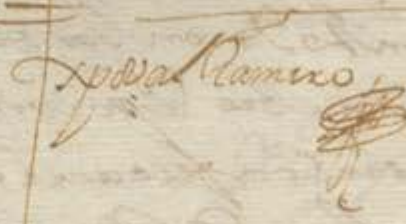 Xpoval Ramiro